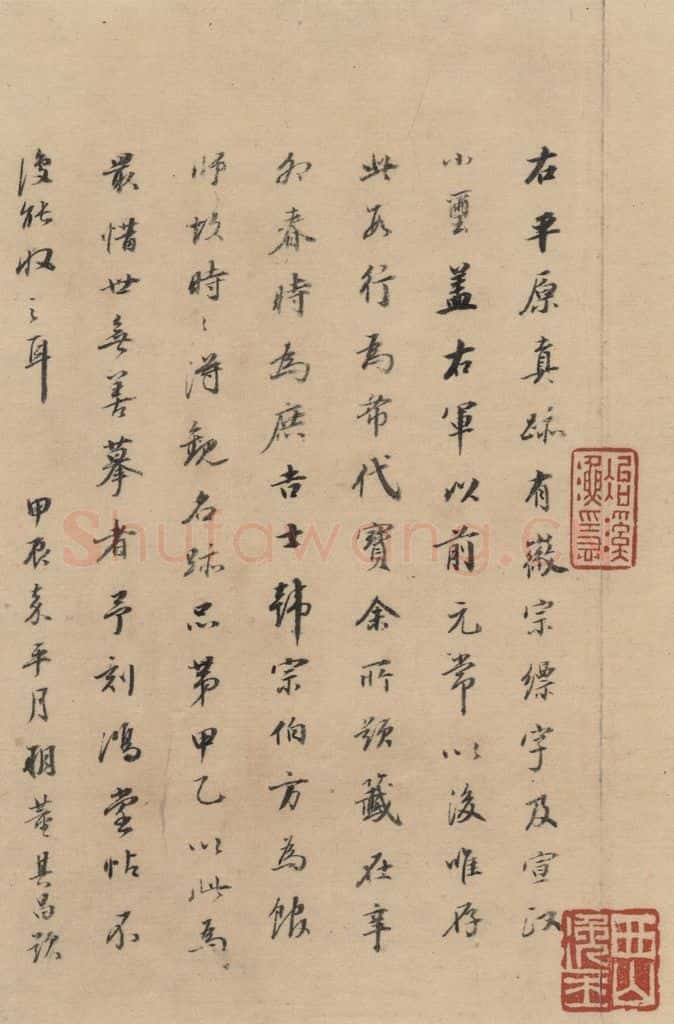 右平原真跡有徽宗縹字及宣和
小璽蓋右軍以前元常以後唯存
此數行為希代寶余所題籤在辛
卯春時為庶吉士韓宗伯方為館
師故時〻得觀名跡品第甲乙以此為
最惜世無善摹者予刻鴻堂帖不
復能收之耳 甲辰嘉平月朔董其昌題
冶溪漁隱
西山逸士
Shufawang.c